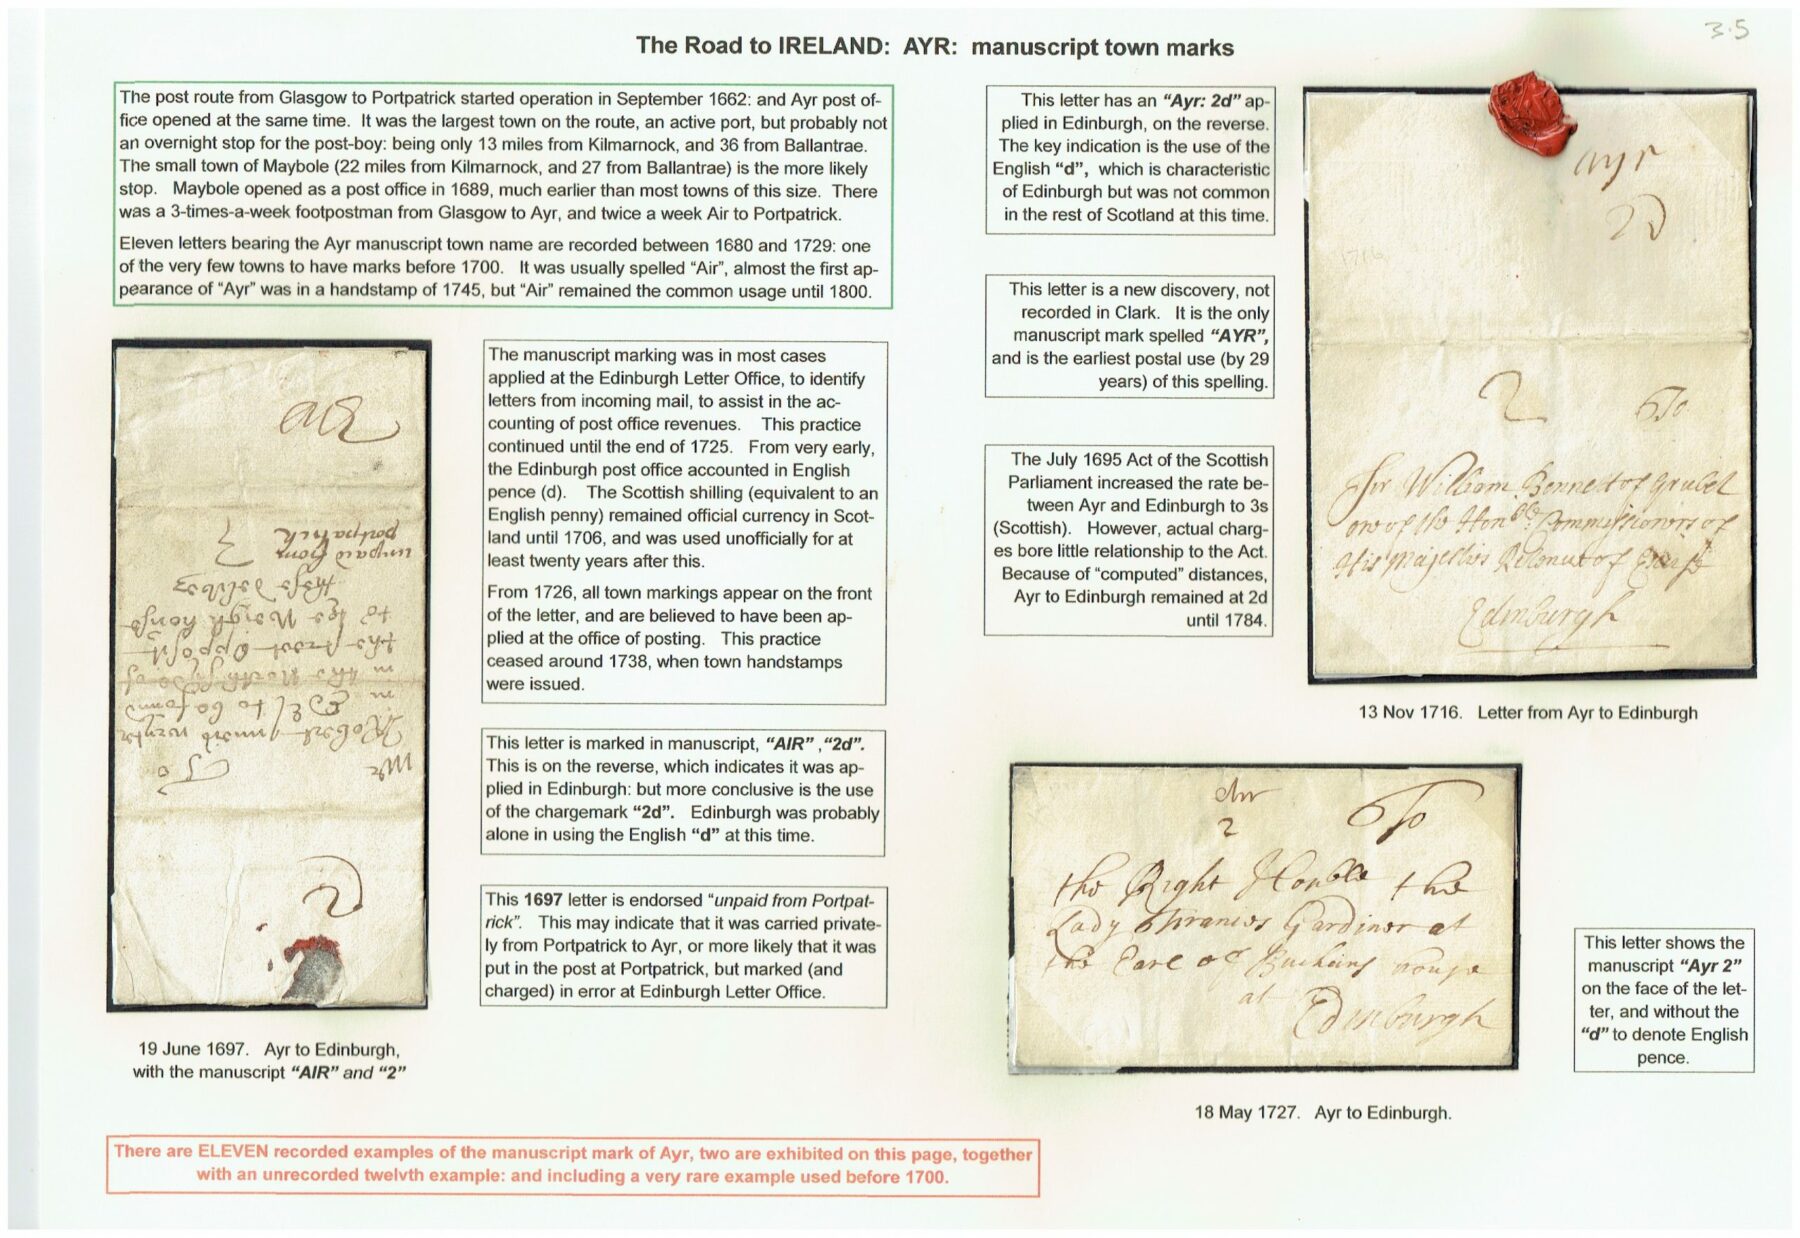 3.5
The Road to IRELAND: AYR: manuscript town marks
The post route from Glasgow to Portpatrick started operation in September 1662: and Ayr post of-
fice opened at the same time. It was the largest town on the route, an active port, but probably not
an overnight stop for the post-boy: being only 13 miles from Kilmarnock, and 36 from Ballantrae.
The small town of Maybole (22 miles from Kilmarnock, and 27 from Ballantrae) is the more likely
stop. Maybole opened as a post office in 1689, much earlier than most towns of this size. There
was a 3-times-a-week footpostman from Glasgow to Ayr, and twice a week Air to Portpatrick.
Eleven letters bearing the Ayr manuscript town name are recorded between 1680 and 1729: one
of the very few towns to have marks before 1700. It was usually spelled “Air”, almost the first ap-
pearance of “Ayr” was in a handstamp of 1745, but “Air” remained the common usage until 1800.
unpaid from
portpatrick
To
Mr
Robert
in Edr to be found
2
19 June 1697. Ayr to Edinburgh,
with the manuscript “AIR” and “2”
The manuscript marking was in most cases
applied at the Edinburgh Letter Office, to identify
letters from incoming mail, to assist in the ac-
counting of post office revenues. This practice
continued until the end of 1725. From very early,
the Edinburgh post office accounted in English
pence (d). The Scottish shilling (equivalent to an
English penny) remained official currency in Scot-
land until 1706, and was used unofficially for at
least twenty years after this.
From 1726, all town markings appear on the front
of the letter, and are believed to have been ap-
plied at the office of posting. This practice
ceased around 1738, when town handstamps
were issued.
This letter is marked in manuscript, “AIR” ,“2d”.
This is on the reverse, which indicates it was ap-
plied in Edinburgh: but more conclusive is the use
of the chargemark “2d”. Edinburgh was probably
alone in using the English “d” at this time.
This 1697 letter is endorsed “unpaid from Portpat-
rick”. This may indicate that it was carried private-
ly from Portpatrick to Ayr, or more likely that it was
put in the post at Portpatrick, but marked (and
charged) in error at Edinburgh Letter Office.
This letter has an “Ayr: 2d” ap-
plied in Edinburgh, on the reverse.
The key indication is the use of the
English “d”, which is characteristic
of Edinburgh but was not common
in the rest of Scotland at this time.
This letter is a new discovery, not
recorded in Clark. It is the only
manuscript mark spelled “AYR”,
and is the earliest postal use (by 29
years) of this spelling.
The July 1695 Act of the Scottish
Parliament increased the rate be-
tween Ayr and Edinburgh to 3s
(Scottish). However, actual charg-
es bore little relationship to the Act.
Because of “computed” distances,
Ayr to Edinburgh remained at 2d
until 1784.
ayr
2D
1716
2 To
Sir William Bennett of Grubet
one of the Honble Commissioners of
His Majesties Revenue of Excise
Edinburgh
13 Nov 1716. Letter from Ayr to Edinburgh
To
2
the Right Honble the
Lady Gardiner at
the Earl of Buchans house
at Edinburgh
18 May 1727. Ayr to Edinburgh.
This letter shows the
manuscript “Ayr 2”
on the face of the let-
ter, and without the
“d” to denote English
pence.
There are ELEVEN recorded examples of the manuscript mark of Ayr, two are exhibited on this page, together
with an unrecorded twelvth example: and including a very rare example used before 1700.